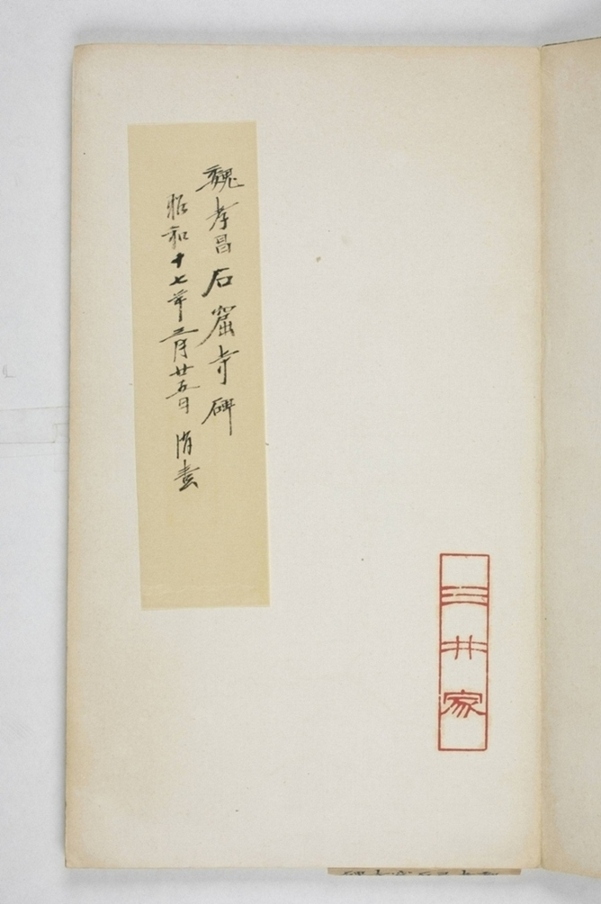 魏孝昌石窟寺碑
昭和十七年三月廿五日 消夏
三井家